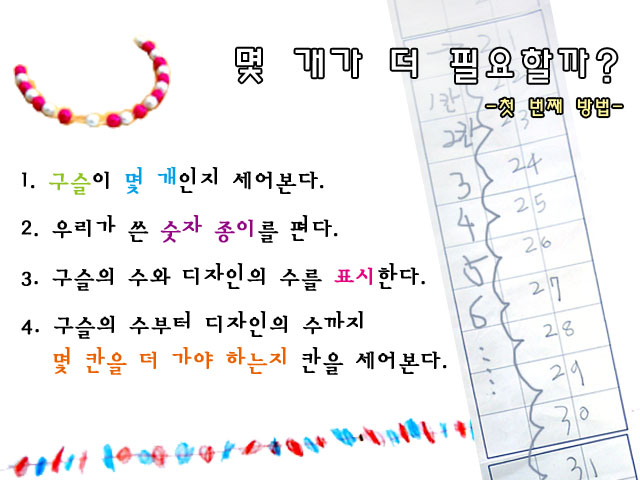 몇 개가 더 필요할까?
-첫 번째 방법-
1. 구슬이 몇 개인지 세어본다.
2. 우리가 쓴 숫자 종이를 편다.
3. 구슬의 수와 디자인의 수를 표시한다.
4. 구슬의 수부터 디자인의 수까지
몇 칸을 더 가야 하는지 칸을 세어본다.
21
1칸
2칸 23
3 24
4 25
5 26
6 27
28
29
30
31